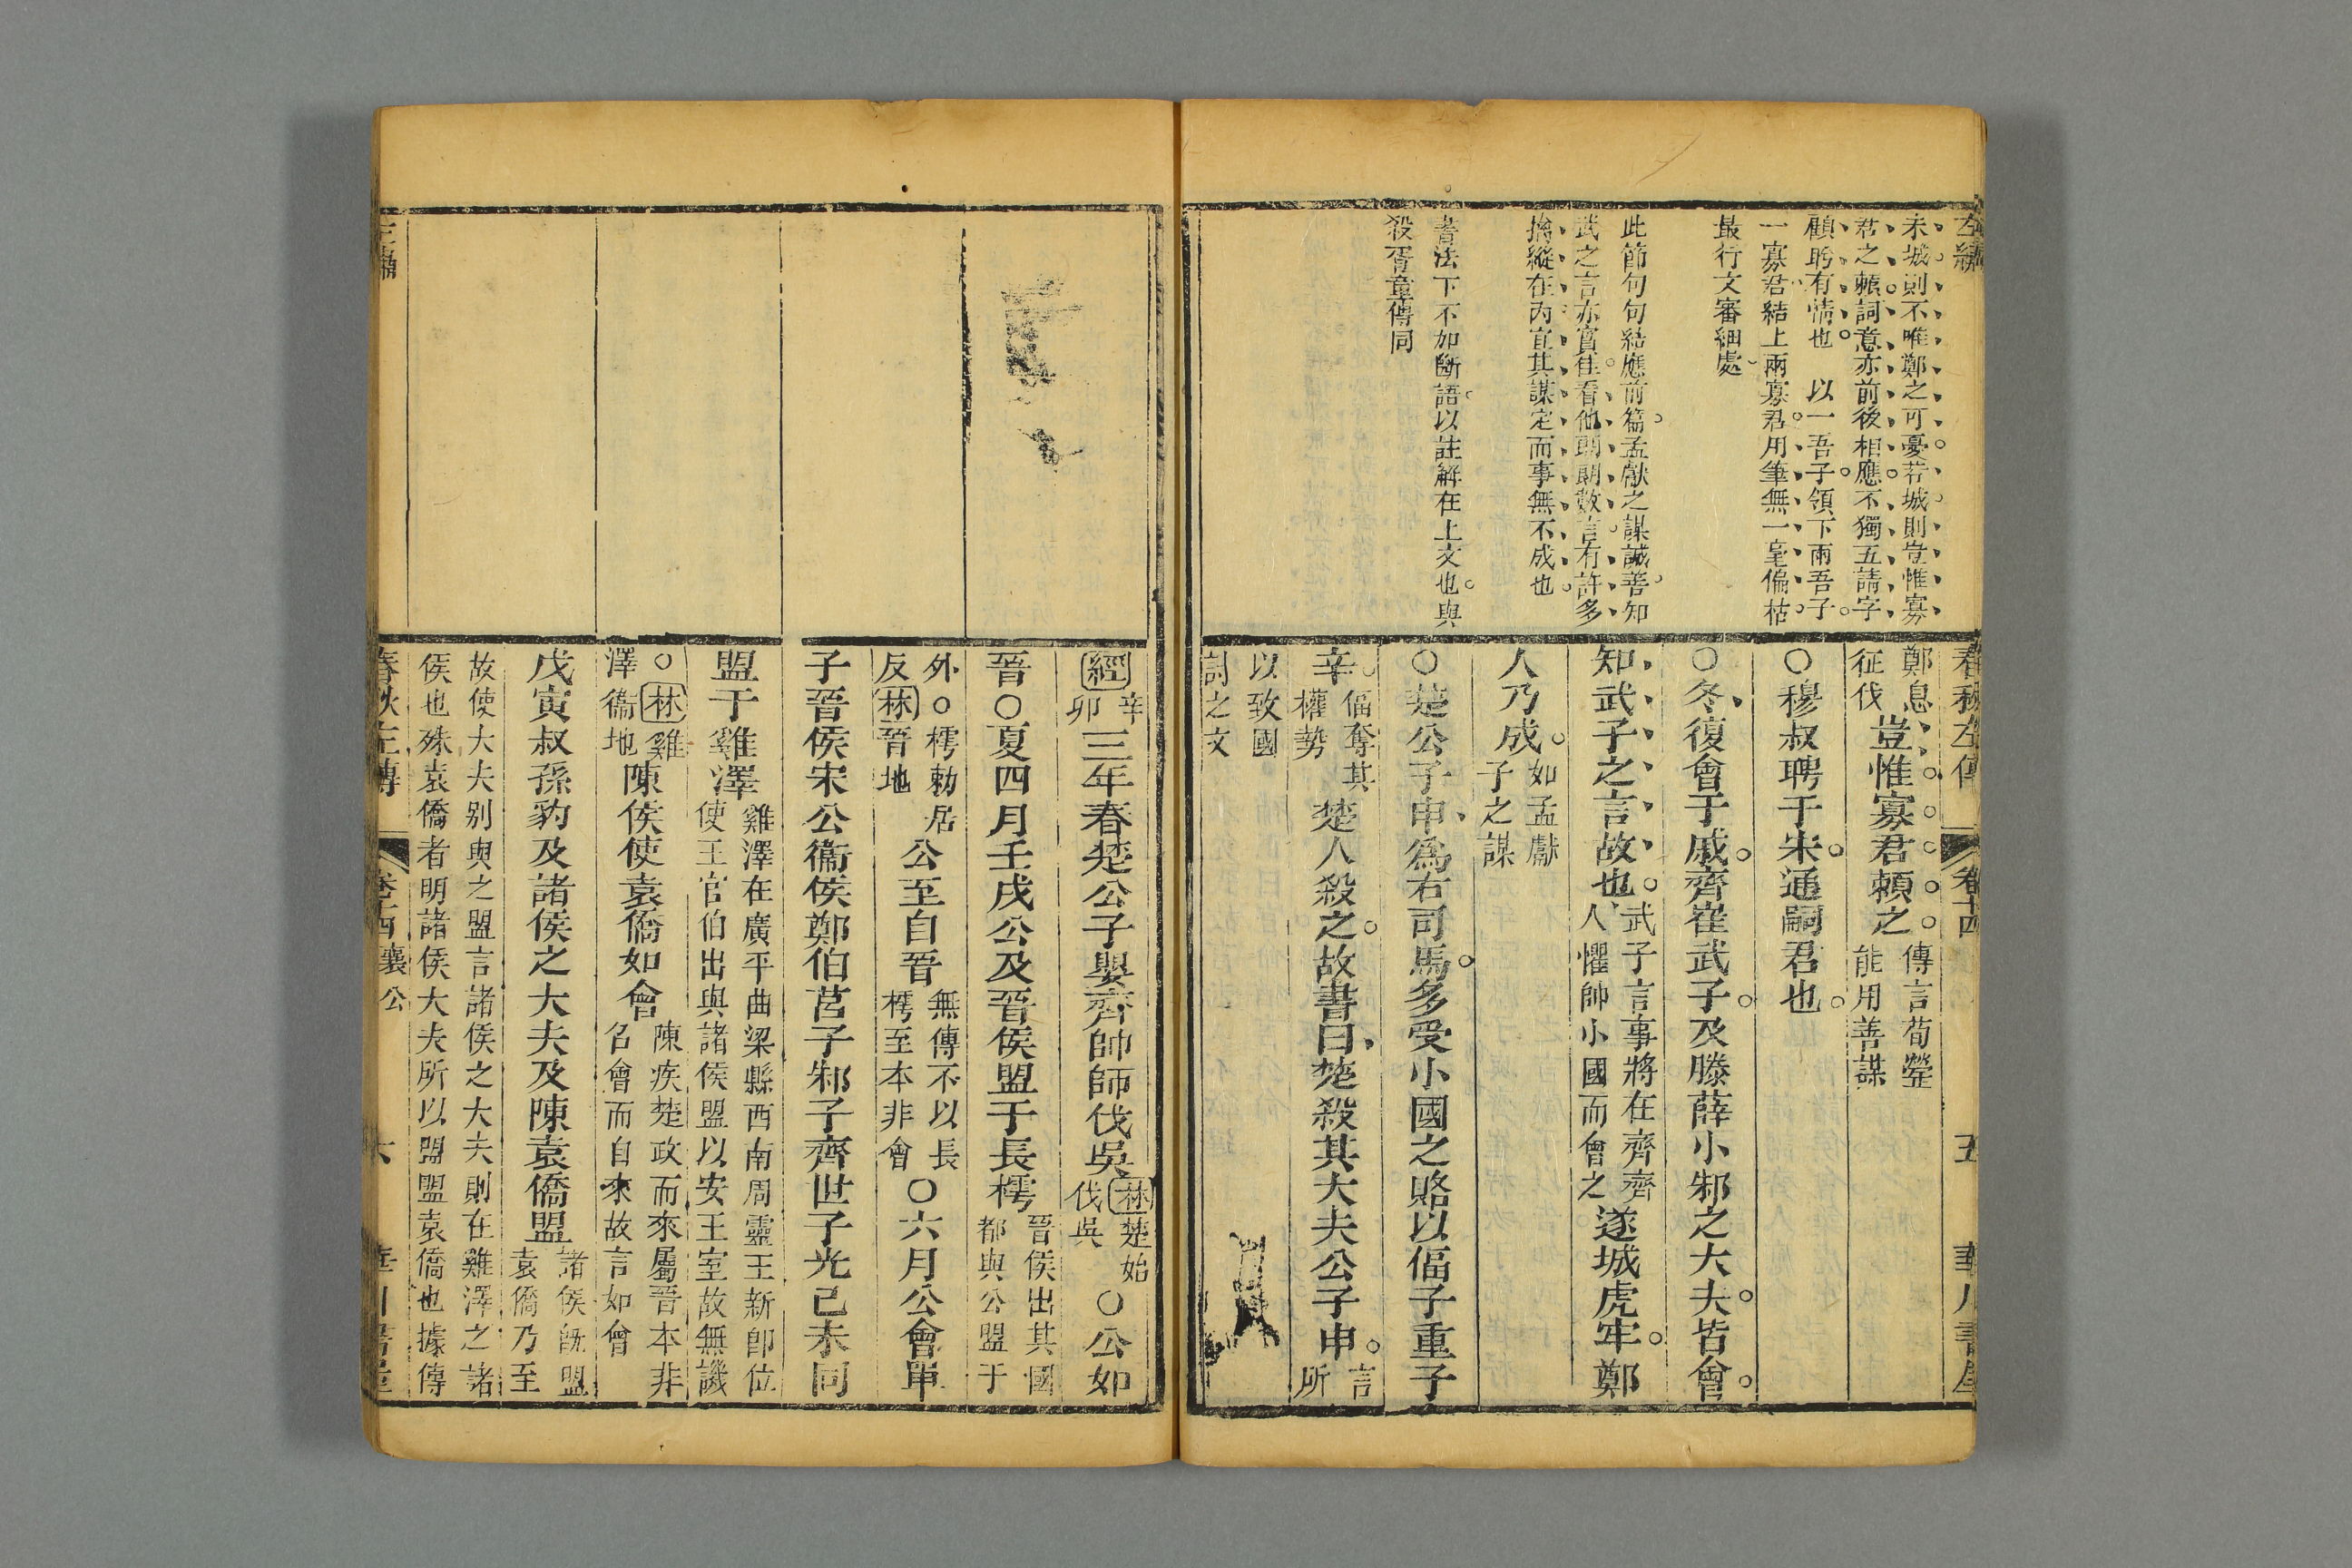 左繡
未城則不唯鄭之可憂若城則豈惟寡
君之賴詞意亦前後相應不獨五請字
顧盼有情也　以一吾子領下兩吾子
一寡君結上兩寡君用筆無一毫偏枯
最行文審細處
此節句句結應前篇孟獻之謀誠善知
武之言亦實佳看他兩闕數言有許多
擒縱在內宜其謀定而事無不成也
書法下不如斷語以註解在上文也與
殺胥童傳同
春秋左傳　卷十四　五　華川書屋
鄭息
征伐
豈惟寡君賴之
傳言荀罃
能用善謀
○穆叔聘于宋通嗣君也
○冬復會于戚齊崔武子及滕薛小邾之大夫皆會
知武子之言故也
武子言事將在齊齊
人懼帥小國而會之
遂城虎牢鄭
人乃成
如孟獻
子之謀
○楚公子申為右司馬多受小國之賂以偪子重子
辛
偪奪其
權勢
楚人殺之故書曰楚殺其大夫公子申
言
所
以致國
討之文
經
辛
卯
三年春楚公子嬰齊帥師伐吳
林楚始
伐吳
○公如
晉○夏四月壬戌公及晉侯盟于長樗
晉侯出其國
都與公盟于
外○樗勅居
反林晉地
公至自晉
無傳不以長
樗至本非會
○六月公會單
子晉侯宋公衞侯鄭伯莒子邾子齊世子光己未同
盟于雞澤
雞澤在廣平曲梁縣西南周靈王新卽位
使王官伯出與諸侯盟以安王室故無譏
○林雞
澤衞地
陳侯使袁僑如會
陳疾楚政而來屬晉本非
召會而自來故言如會
戊寅叔孫豹及諸侯之大夫及陳袁僑盟
諸侯旣盟
袁僑乃至
故使大夫别與之盟言諸侯之大夫則在雞澤之諸
侯也殊袁僑者明諸侯大夫所以盟盟袁僑也據傳
左繡
春秋左傳　卷十四襄公　六　華川書屋